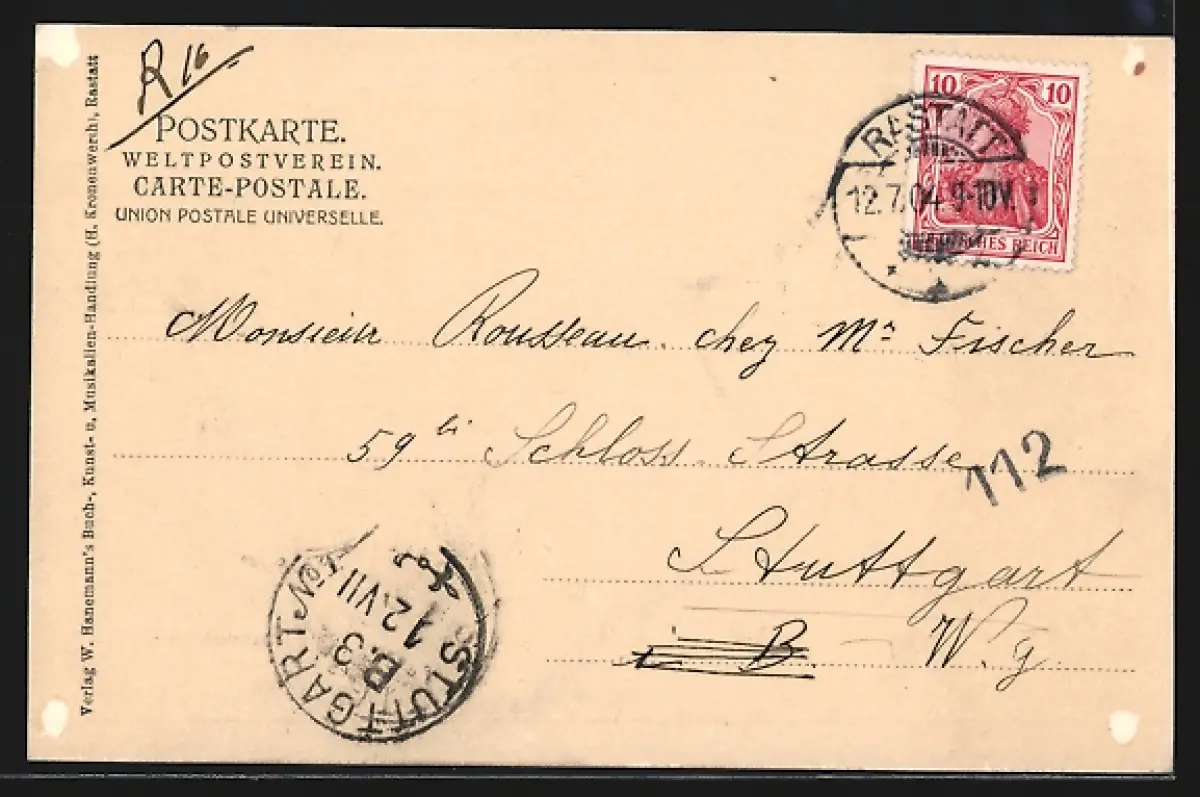 R 16
POSTKARTE.
WELTPOSTVEREIN.
CARTE-POSTALE.
UNION POSTALE UNIVERSELLE.
10 10
DEUTSCHES REICH
RASTATT
12.7.04.9-10V.
Monsieur Rousseau chez Mr Fischer
59 Schloss Strasse
112
Stuttgart
B. W. g.
STUTTGART No
B.3
12.VII
Verlag W. Hanemann's Buch-, Kunst- u. Musikalien-Handlung (H. Kronenwerth), Rastatt